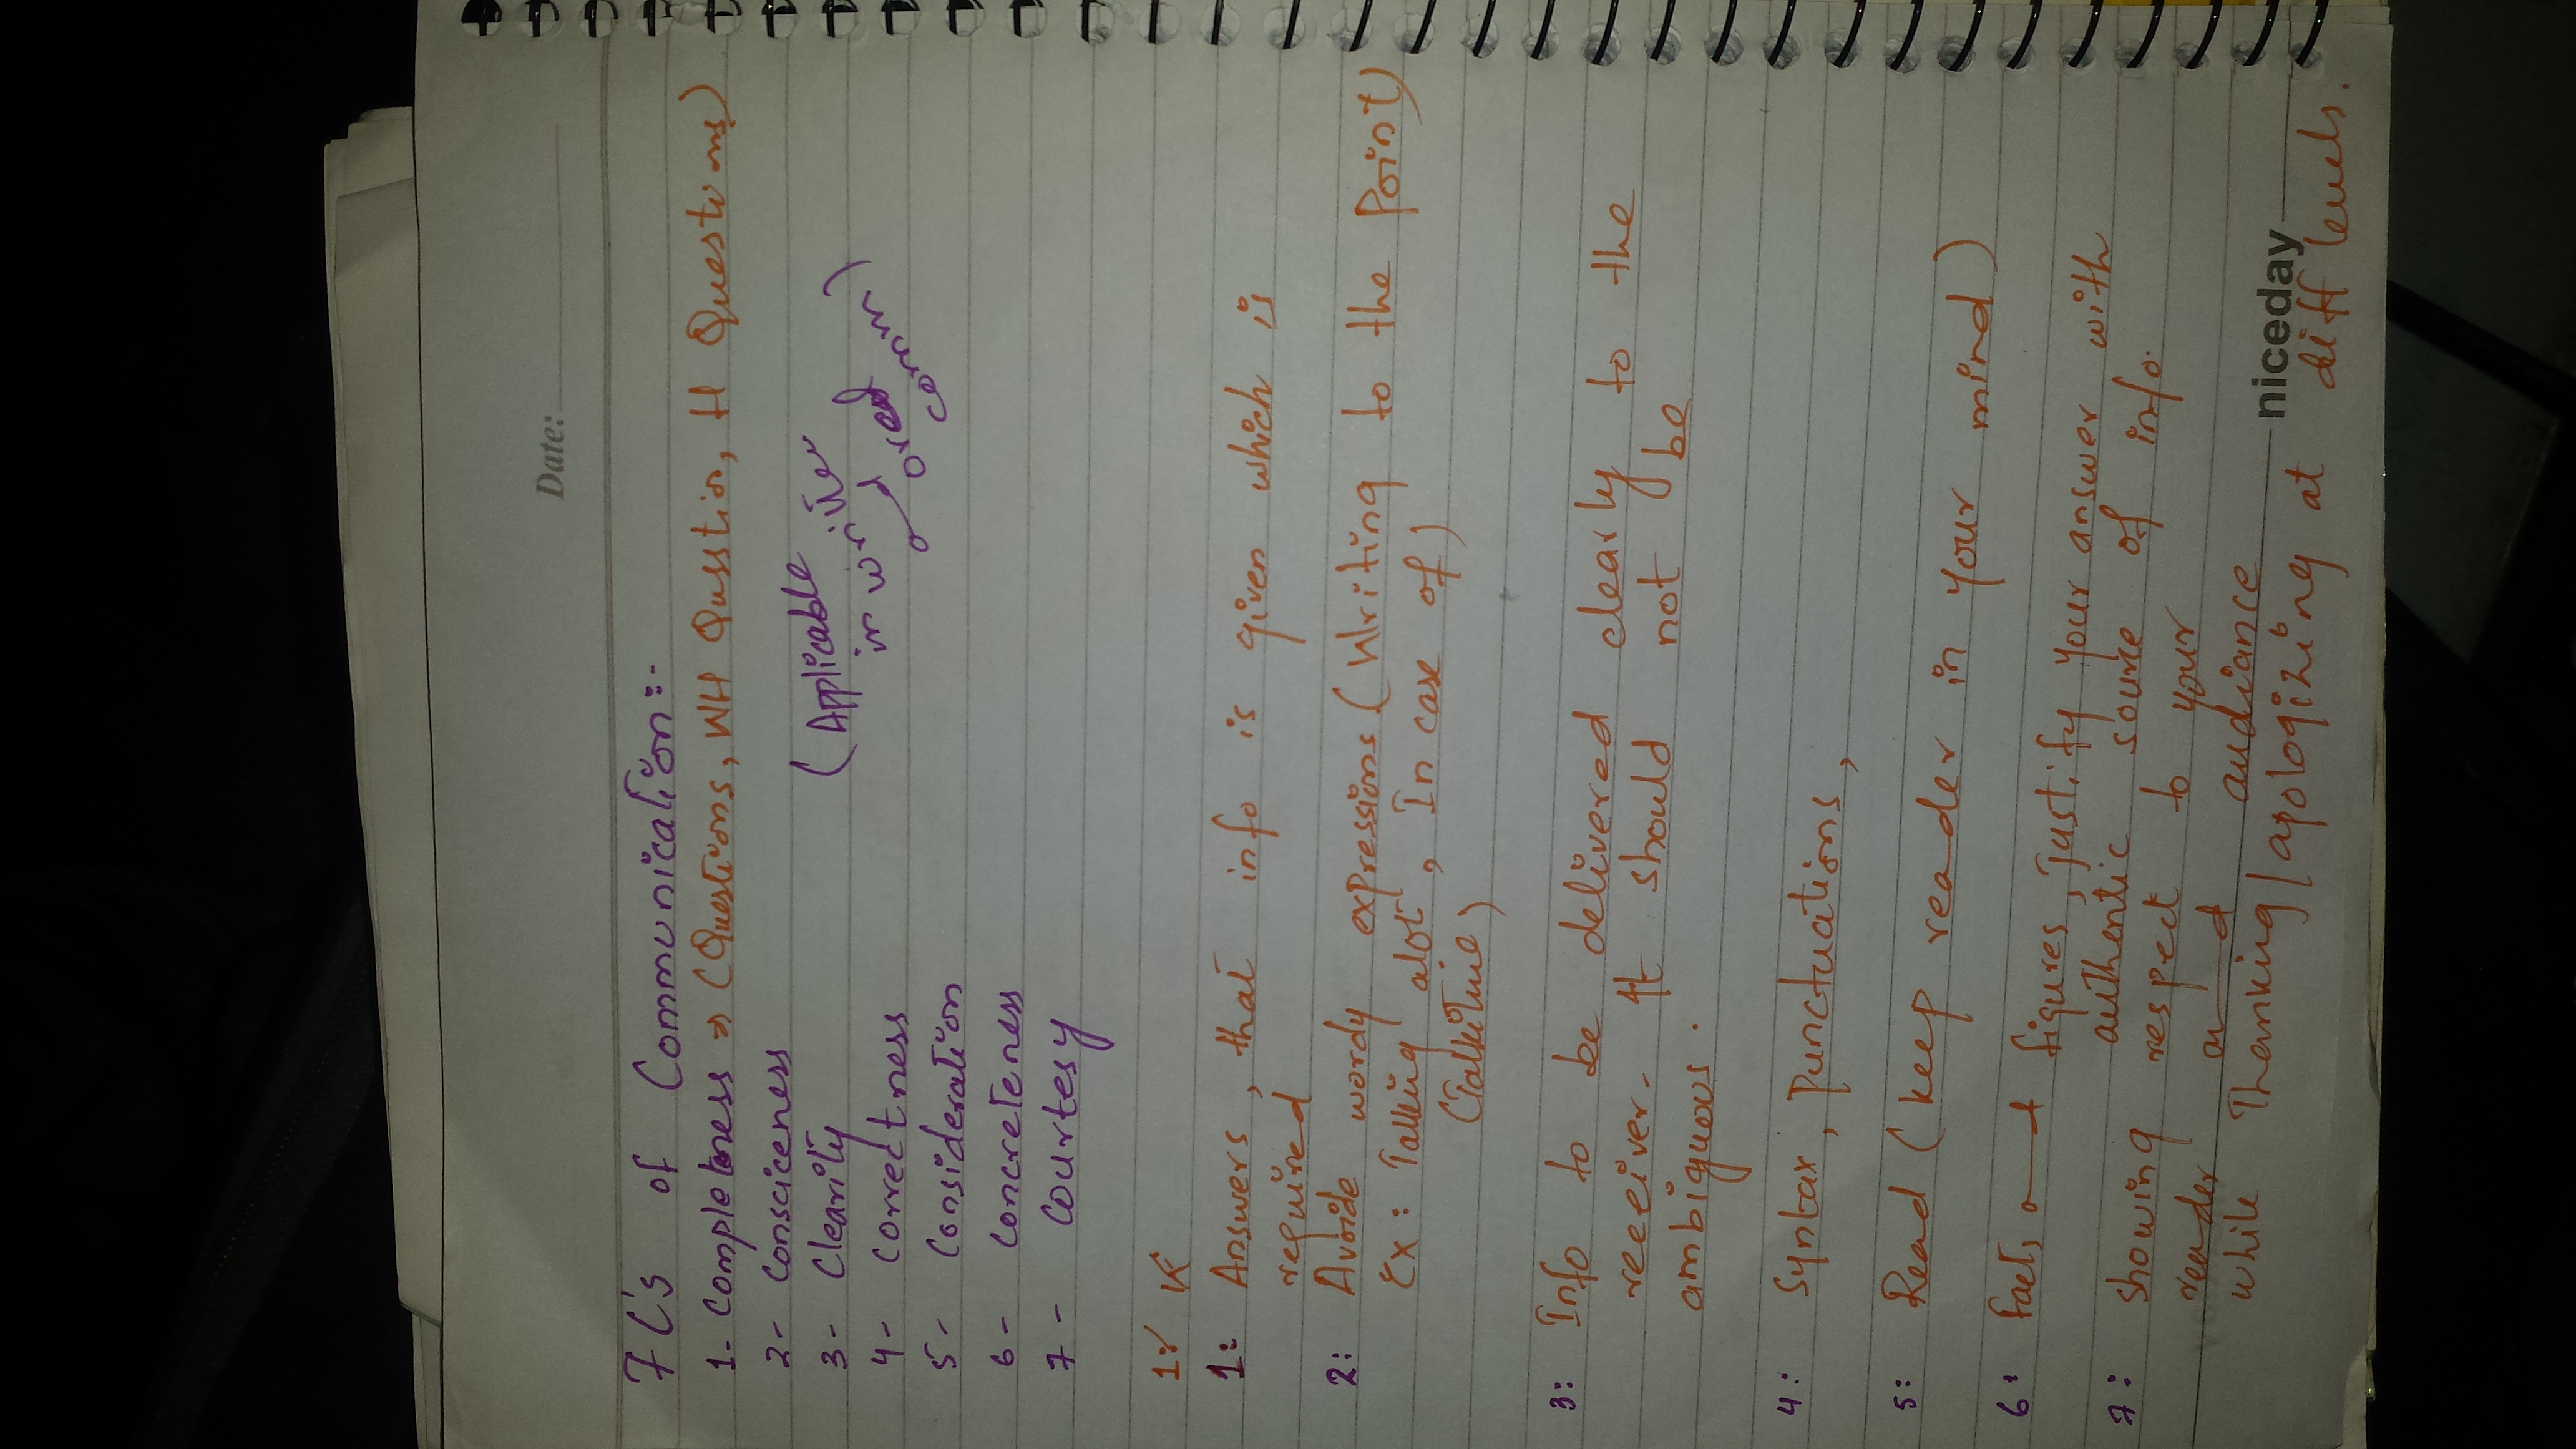 Date:
7 C's of Communication:-
1- Completeness => (Questions, WH Qusstion, H Questions)
2- Consciceness
3- Clearity
4- Correctness
5- Consideration
6- Concreteness
7- Courtesy
(Applicable
in written
and oral
comm)
1:
1: Answers, that info is given which is
required
2: Avoide wordy expressions (Writing to the Point)
Ex: Talking alot, In case of)
3: Info to be delivered clearly to the
receiver. It should not be
ambiguous.
4: Syntax, Punctuations,
5: Read (keep reader in your mind)
6: facts and figures, justify your answer with
authentic source of info.
7: showing respect to your
reader and audiance
while Thanking/apologizing at diff levels.
niceday